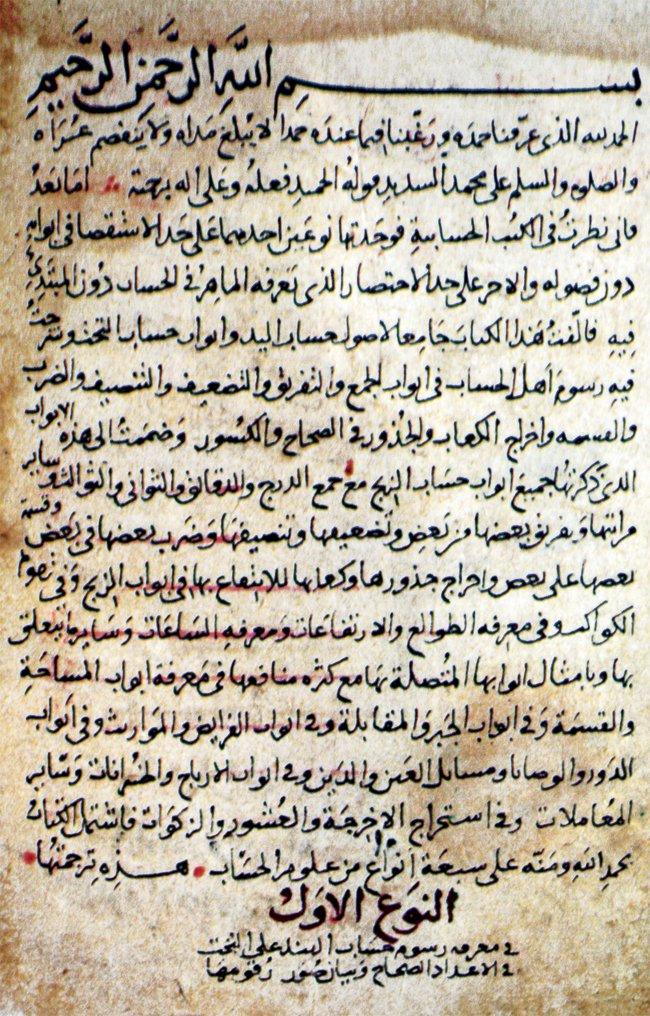 بسم الله الرحمن الرحيم
الحمد لله الذى عرفنا حمده ورغبنا فيما عنده حمدا لا يبلغ مداه ولا ينفصم عراه
والصلوه والسلم على محمد السديد قوله الحميد فعله وعلى اله برحمته اما بعد
فانى نظرت فى الكتب الحسابية فوجدتها نوعين احدهما على حد الاستقصا فى ابوابه
دون فصوله والاخر على حد الاختصار الذى يعرفه الماهر فى الحساب دون المبتدى
فيه فالفت هذا الكتاب جامعا لاصول حساب اليد وابواب حساب التخت وشرحت
فيه رسوم اهل الحساب فى ابواب الجمع والتفريق والتضعيف والتنصيف والضرب
والقسمه واخراج الكعاب والجذور فى الصحاح والكسور وضممت الى هذه الابواب
الذى ذكرتها جميع ابواب حساب الزيج مع جمع الدرج والدقائق والثوانى والثوالث وساير
مراتبها وتفريق بعضها من بعض وتضعيفها وتنصيفها وضرب بعضها فى بعض وقسمة
بعضها على بعض واخراج جذورها وكعابها للانتفاع بها فى ابواب الزيج وفى تقويم
الكواكب وفى معرفه الطوالع والارتفاعات ومعرفه الساعات وساير ما يتعلق
بها وبامثال ابوابها المتصلة بها مع كثره منافعها فى معرفة ابواب المساحة
والقسمة وفى ابواب الجبر والمقابلة وفى ابواب الفرايض والمواريث وفى ابواب
الدور والوصايا ومسايل العين والدين وفى ابواب الارباح والخسرانات وساير
المعاملات وفى استخراج الاخرجة والعشور والزكوات فاشتمل الكتاب
بحمد الله ومنه على سبعة انواع من علوم الحساب هذه ترجمتها
النوع الاول
فى معرفه رسوم حساب الهند على التخت
فى الاعداد الصحاح وبيان صور رقومها